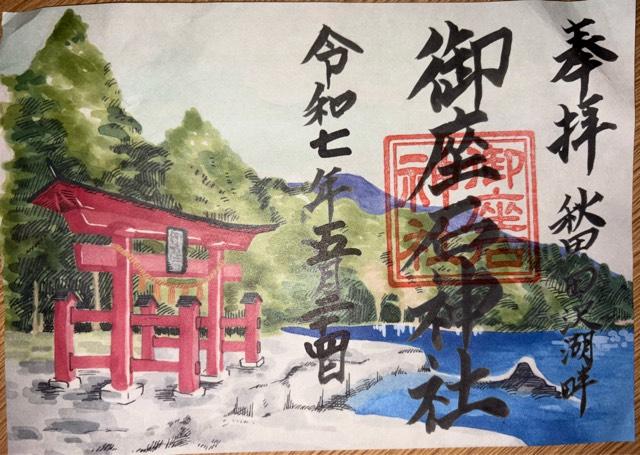 奉拝 秋田 田沢湖畔
御座石神社
御座石
神社
令和七年五月二十四日